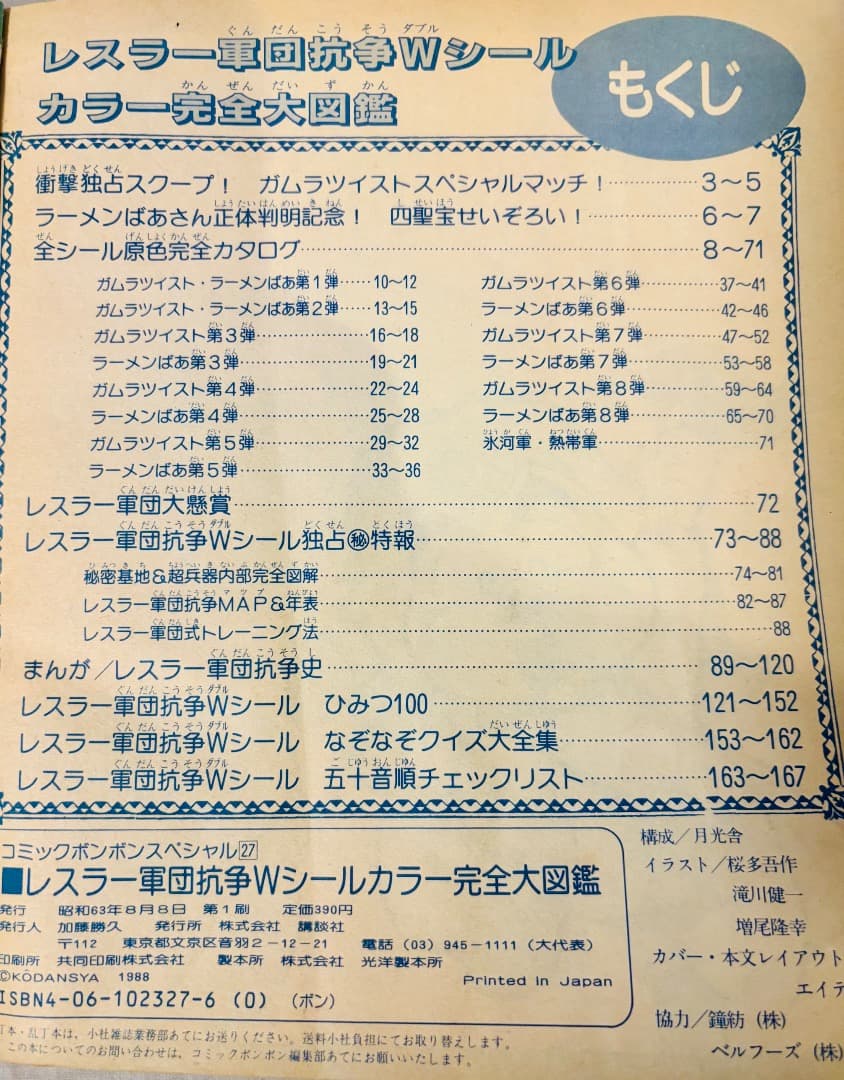 レスラー軍団抗争Wシール
カラー完全大図鑑
もくじ
衝撃独占スクープ！ ガムラツイストスペシャルマッチ！…………3〜5
ラーメンばあさん正体判明記念！ 四聖宝せいぞろい！…………6〜7
全シール原色完全カタログ…………8〜71
ガムラツイスト・ラーメンばあ第1弾……10〜12
ガムラツイスト・ラーメンばあ第2弾……13〜15
ガムラツイスト第3弾…………16〜18
ラーメンばあ第3弾…………19〜21
ガムラツイスト第4弾…………22〜24
ラーメンばあ第4弾…………25〜28
ガムラツイスト第5弾…………29〜32
ラーメンばあ第5弾…………33〜36
ガムラツイスト第6弾…………37〜41
ラーメンばあ第6弾…………42〜46
ガムラツイスト第7弾…………47〜52
ラーメンばあ第7弾…………53〜58
ガムラツイスト第8弾…………59〜64
ラーメンばあ第8弾…………65〜70
氷河軍・熱帯軍…………71
レスラー軍団大懸賞…………72
レスラー軍団抗争Wシール独占㊙特報…………73〜88
秘密基地&超兵器内部完全図解…………74〜81
レスラー軍団抗争MAP&年表…………82〜87
レスラー軍団式トレーニング法…………88
まんが／レスラー軍団抗争史…………89〜120
レスラー軍団抗争Wシール ひみつ100…………121〜152
レスラー軍団抗争Wシール なぞなぞクイズ大全集…………153〜162
レスラー軍団抗争Wシール 五十音順チェックリスト…………163〜167
コミックボンボンスペシャル27
■レスラー軍団抗争Wシールカラー完全大図鑑
発行 昭和63年8月8日 第1刷 定価390円
発行人 加藤勝久 発行所 株式会社 講談社
〒112 東京都文京区音羽2-12-21 電話(03)945-1111(大代表)
印刷所 共同印刷株式会社 製本所 株式会社 光洋製本所
©KŌDANSYA 1988 Printed in Japan
ISBN4-06-102327-6 (0) (ボン)
丁本・乱丁本は、小社雑誌業務部あてにお送りください。送料小社負担にてお取り替えします。
この本についてのお問い合わせは、コミックボンボン編集部あてにお願いいたします。
構成／月光舎
イラスト／桜多吾作
滝川健一
増尾隆幸
カバー・本文レイアウト
エイテ
協力／鐘紡(株)
ベルフーズ(株)